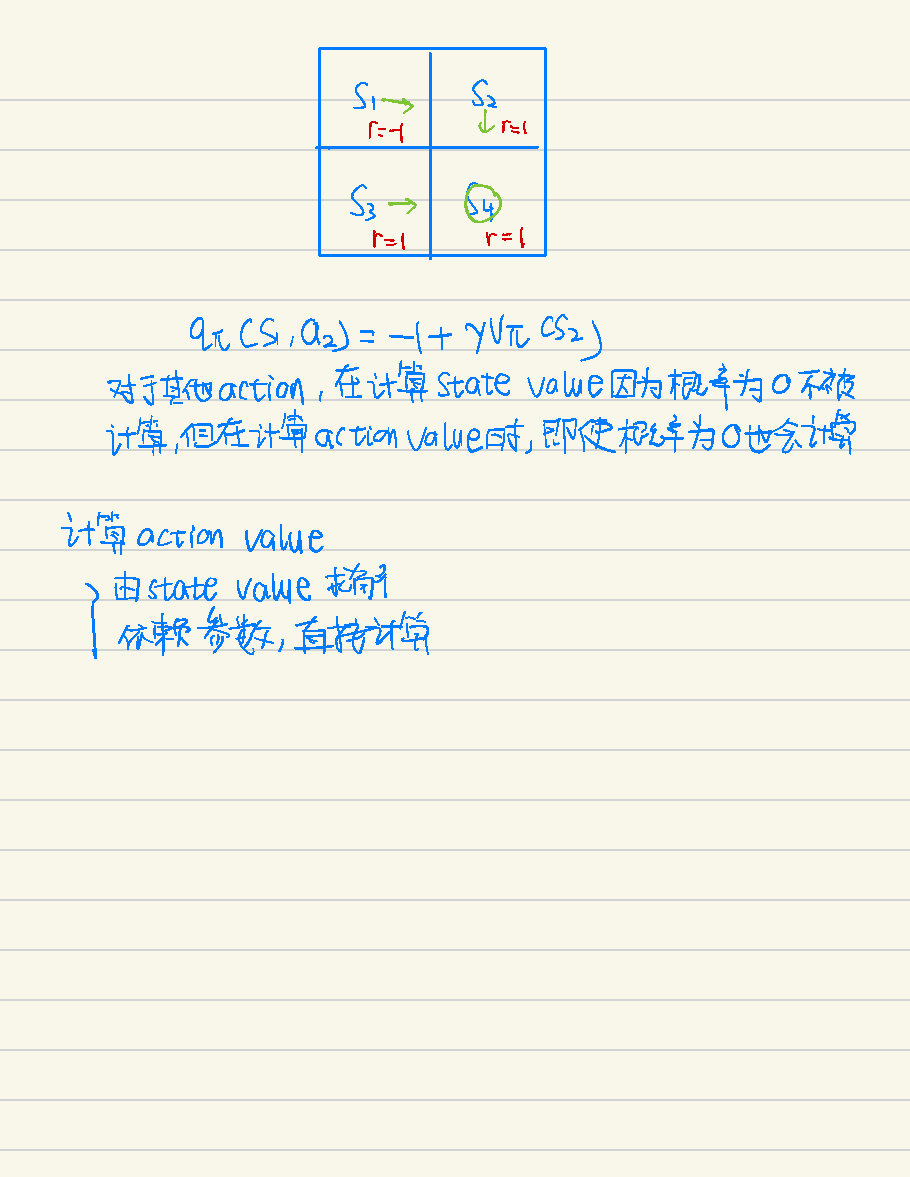 S1 → S2
r=-1 ↓ r=1
S3 → S4
r=1 r=1
qπ(S1,a2) = -1 + γVπ(S2)
对于其他action,在计算state value因为概率为0不被
计算,但在计算action value时,即使概率为0也会计算
计算action value
由state value 求得
依赖参数,直接计算